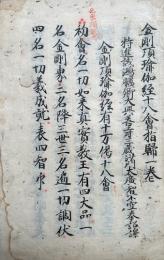 金剛頂瑜伽經十八會指歸一卷
特進試鴻臚卿大興善寺三藏沙門大廣智不空奉詔譯
金剛頂瑜伽經有十万偈十八會
初會名一切如來真實教王有四大品一
名金剛界二名降三世三名遍一切調伏
四名一切義成就表四智印